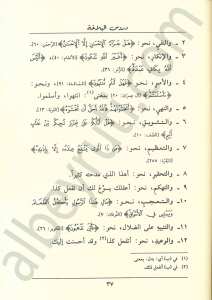 دروس البلاغة
٢ ـ والنفي، نحو: ﴿هَلْ جَزَاءُ الْإِحْسَنِ إِلَّا الْإِحْسَنُ﴾ [الرحمن: ٦٠].
٣ ـ والإنكار، نحو: ﴿أَغَيْرَ اللَّهِ تَدْعُونَ﴾ [الأنعام: ٤٠]، ﴿أَلَيْسَ
اللَّهُ بِكَافٍ عَبْدَهُ﴾ [الزمر: ٣٦].
٤ ـ والأمر، نحو: ﴿فَهَلْ أَنتُم مُّنتَهُونَ﴾ [المائدة: ٩١]، ونحو:
﴿ءَأَسْلَمْتُمْ﴾ [آل عمران: ٢٠] بمعنى (١) انتهوا، وأسلموا.
٥ ـ والنهي، نحو: ﴿أَتَخْشَوْنَهُمْ فَاللَّهُ أَحَقُّ أَن تَخْشَوْهُ﴾ [التوبة: ١٣].
٦ ـ والتشويق، نحو: ﴿هَلْ أَدُلُّكُمْ عَلَى تِجَرَةٍ تُنجِيكُم مِّنْ عَذَابٍ
أَلِيمٍ﴾ [الصف: ١٠].
٧ ـ والتعظيم، نحو: ﴿مَن ذَا الَّذِي يَشْفَعُ عِندَهُ إِلَّا بِإِذْنِهِ﴾
[البقرة: ٢٥٥].
٨ ـ والتحقير، نحو: أهذا الذي مدحته كثيراً؟
٩ ـ والتهكم، نحو: أعقلك يسوّغ لك أن تفعل كذا؟
١٠ ـ والتعجب، نحو: ﴿مَالِ هَذَا الرَّسُولِ يَأْكُلُ الطَّعَامَ
وَيَمْشِي فِي الْأَسْوَاقِ﴾ [الفرقان: ٧].
١١ ـ والتنبيه على الضلال، نحو: ﴿فَأَيْنَ تَذْهَبُونَ﴾ [التكوير: ٢٦].
١٢ ـ والوعيد، نحو: أتفعل كذا (٢) وقد أحسنت إليك.
(١) في
(٢) في
٣٧